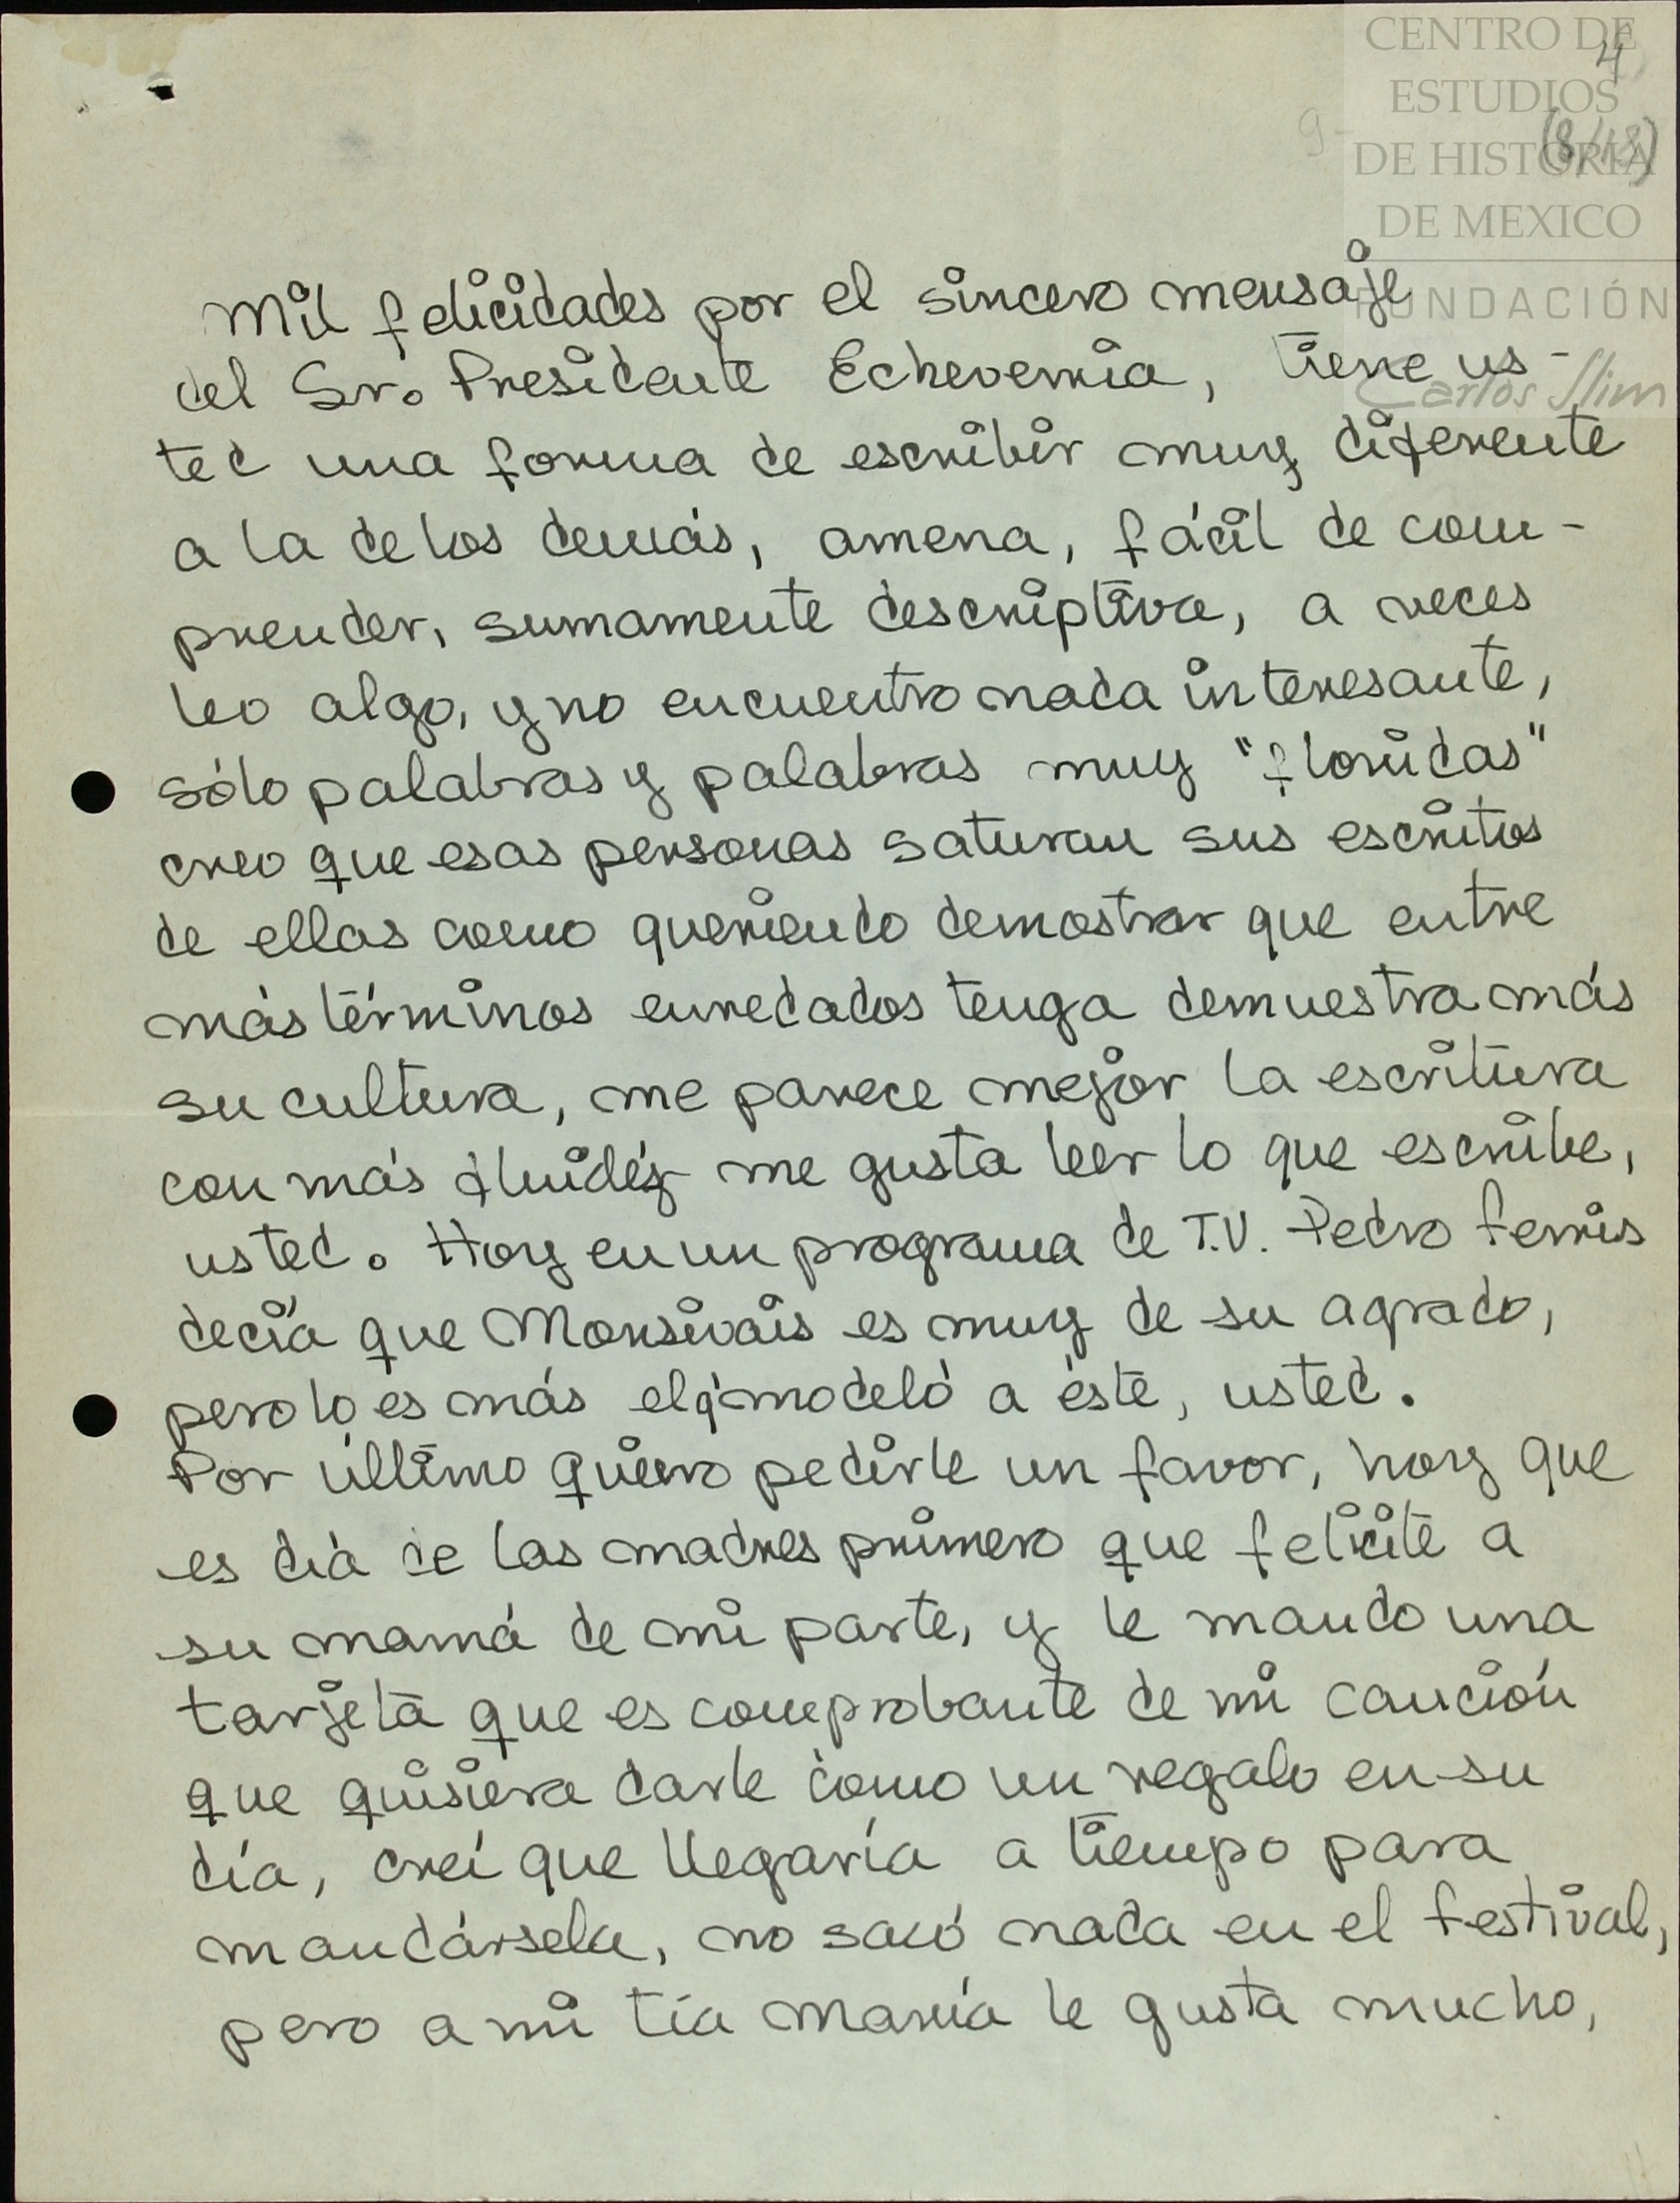 CENTRO DE
ESTUDIOS
DE HISTORIA
DE MEXICO
FUNDACIÓN
Carlos Slim
4
9-
Mil felicidades por el sincero mensaje
del Sr. Presidente Echeverria, tiene us-
ted una forma de escribir muy diferente
a la de los demás, amena, fácil de com-
prender, sumamente descriptiva, a veces
leo algo, y no encuentro nada interesante,
sólo palabras y palabras muy "floridas"
creo que esas personas saturan sus escritos
de ellas como queriendo demostrar que entre
más términos enredados tenga demuestra más
su cultura, me parece mejor la escritura
con más fluidéz me gusta leer lo que escribe,
usted. Hoy en un programa de T.V. Pedro Ferris
decía que Monsivais es muy de su agrado,
pero lo és más el q' modeló a éste, usted.
Por último quiero pedirle un favor, hoy que
es día de las madres primero que felicite a
su mamá de mi parte, y le mando una
tarjeta que es comprobante de mi canción
que quisiera darle como un regalo en su
día, creí que llegaría a tiempo para
mandársela, no sacó nada en el festival,
pero a mi tía María le gusta mucho,